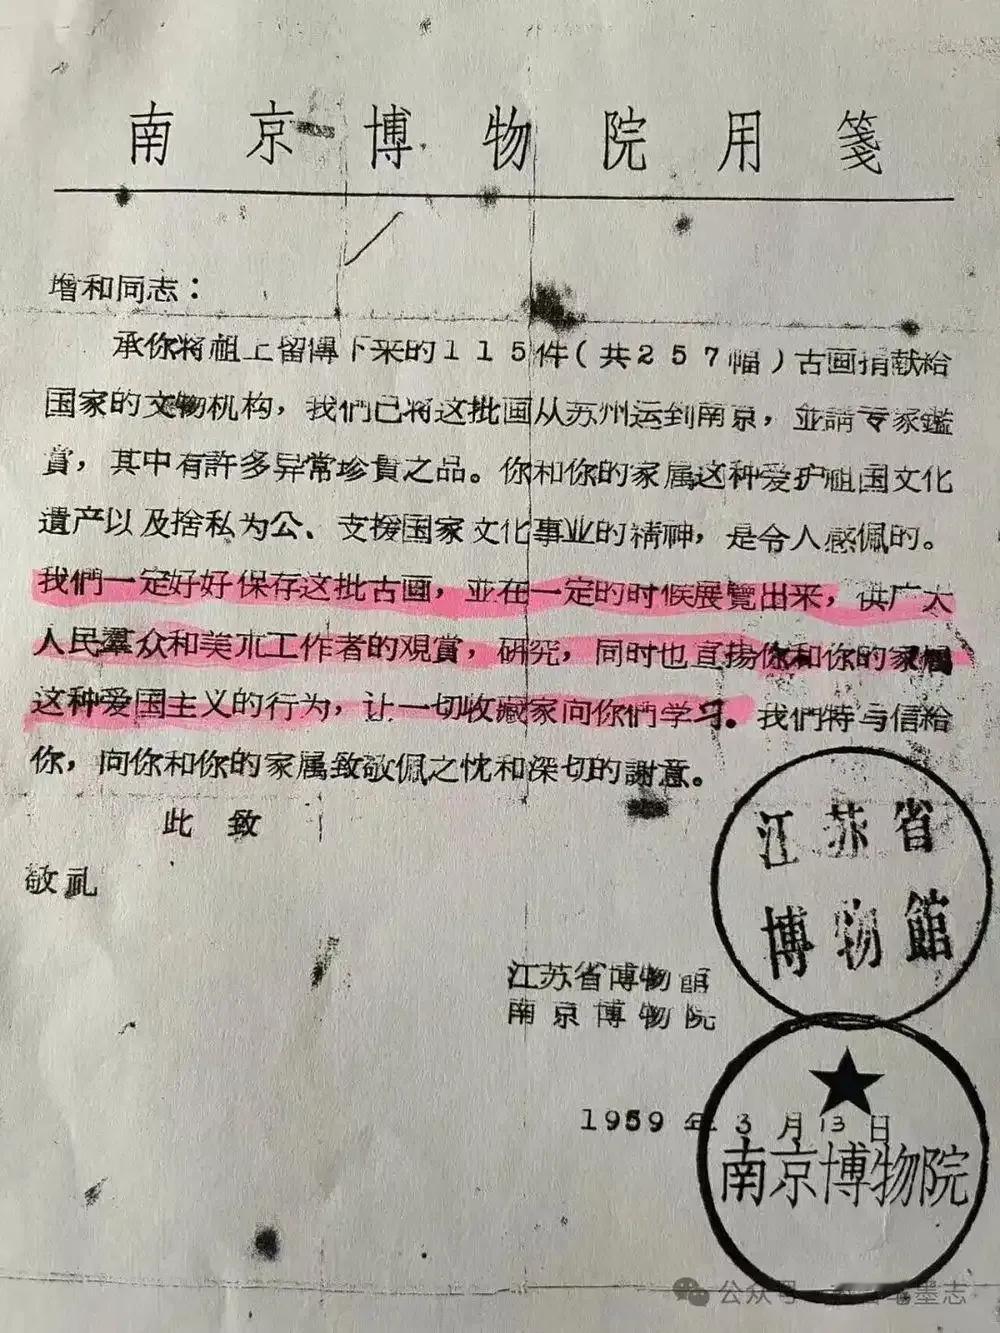 南京博物院用箋
增和同志：
承你将祖上留傳下来的115件(共257幅)古画捐献给
国家的文物机构，我們已将这批画从苏州运到南京，並請专家鑑
賞，其中有許多异常珍貴之品。你和你的家属这种爱护祖国文化
遺产以及捨私为公、支援国家文化事业的精神，是令人感佩的。
我們一定好好保存这批古画，並在一定的时候展覽出来，供广大
人民羣众和美术工作者的观賞，研究，同时也宣揚你和你的家属
这种爱国主义的行为，让一切收藏家向你們学习。我們特写信给
你，向你和你的家属致敬佩之忱和深切的謝意。
此致
敬礼
江苏省
博物館
江苏省博物館
南京博物院
1959年3月13日
南京博物院
公众号
墨志